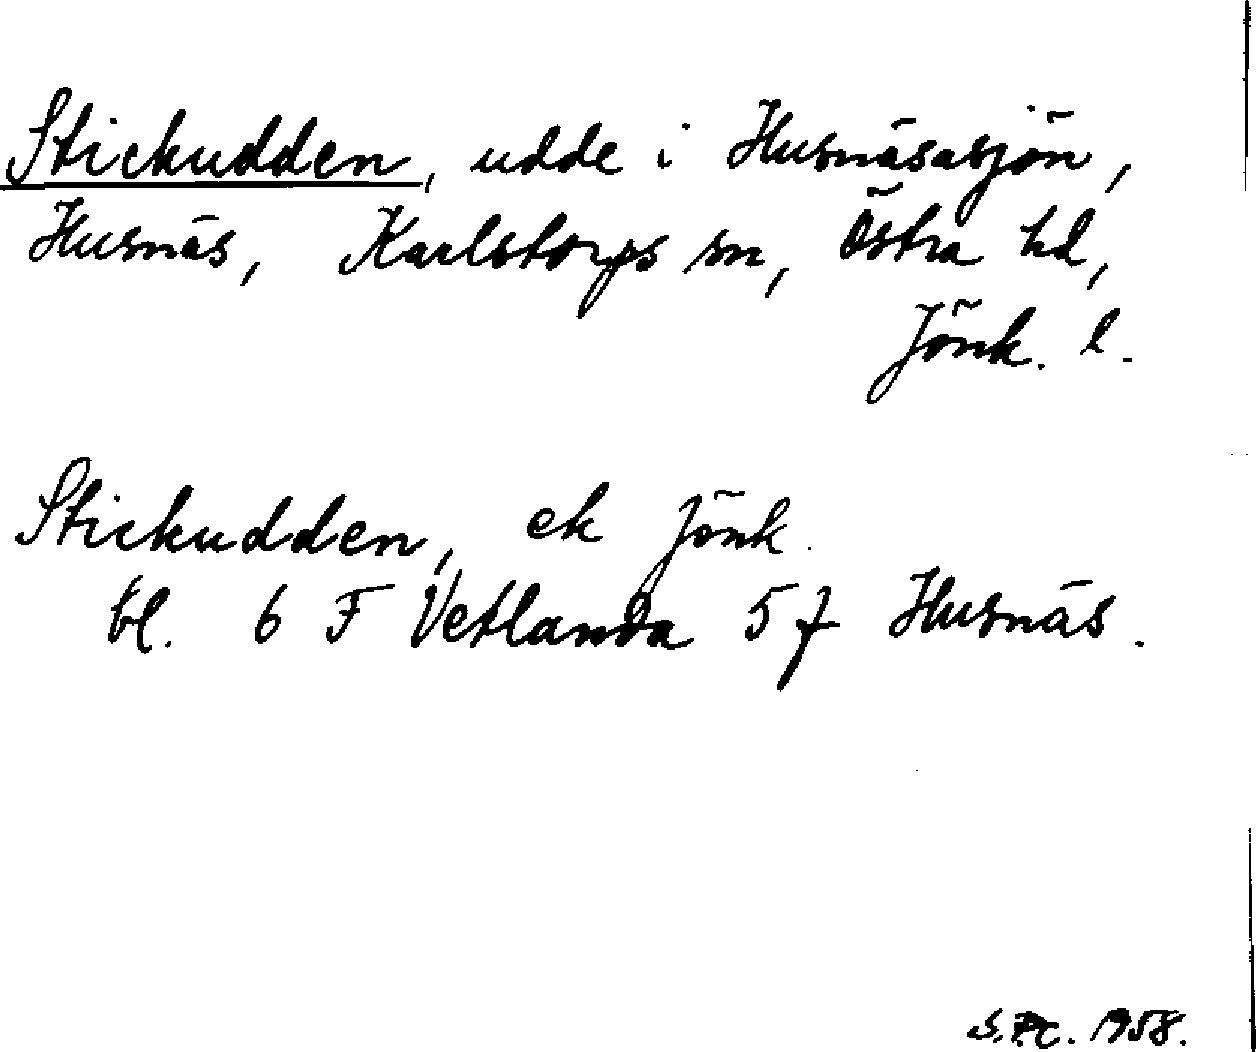 Stickudden, udde i Husnäsasjön,
Husnäs, Karlstorps sn, Östra hd,
Jönk. l.
Stickudden, ek Jönk.
bl. 6 F Vetlanda 5 f Husnäs.
S.P.C. 1958.